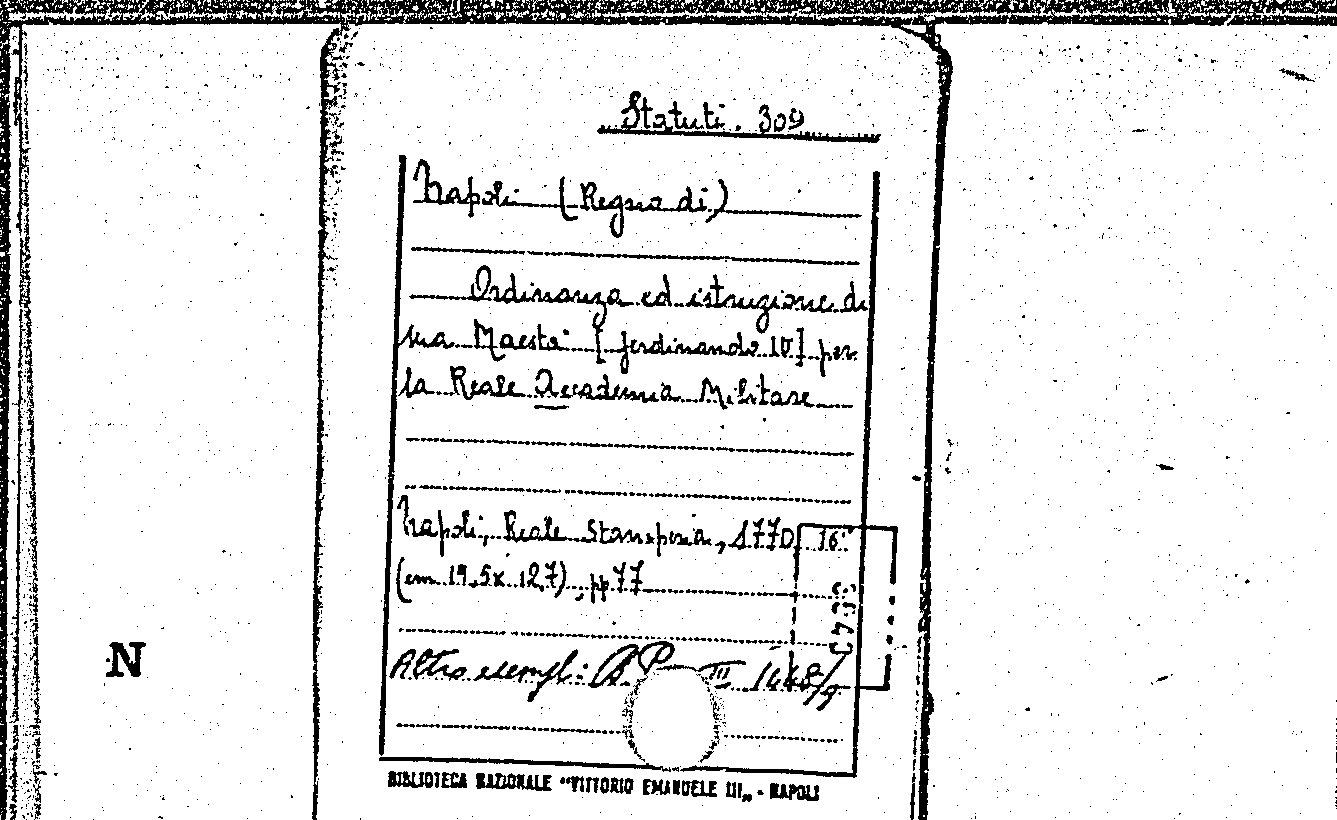 Statuti. 309
Napoli (Regno di)
Ordinanza ed istruzione di
sua Maestà [Ferdinando IV] per
la Reale Accademia Militare
Napoli, Reale Stamperia, 1770, 16°
(cm 19,5x12,7), pp 77
Altro esempl: B.P. III 1448/9
N
BIBLIOTECA NAZIONALE "VITTORIO EMANUELE III„ - NAPOLI